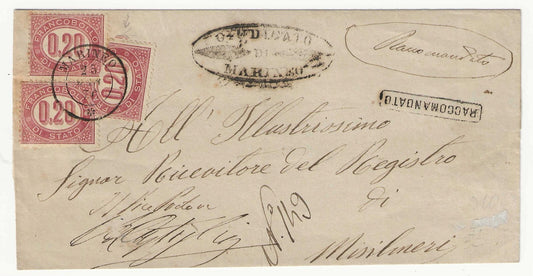 FRANCOBOLLO
0,20
DI STATO
FRANCOBOLLO
0,20
DI STATO
0,20
MARINEO
DI
MARINEO
Raccomandato
RACCOMANDATO
All' Illustrissimo
Signor Ricevitore del Registro
di
Misilmeri
N. 149